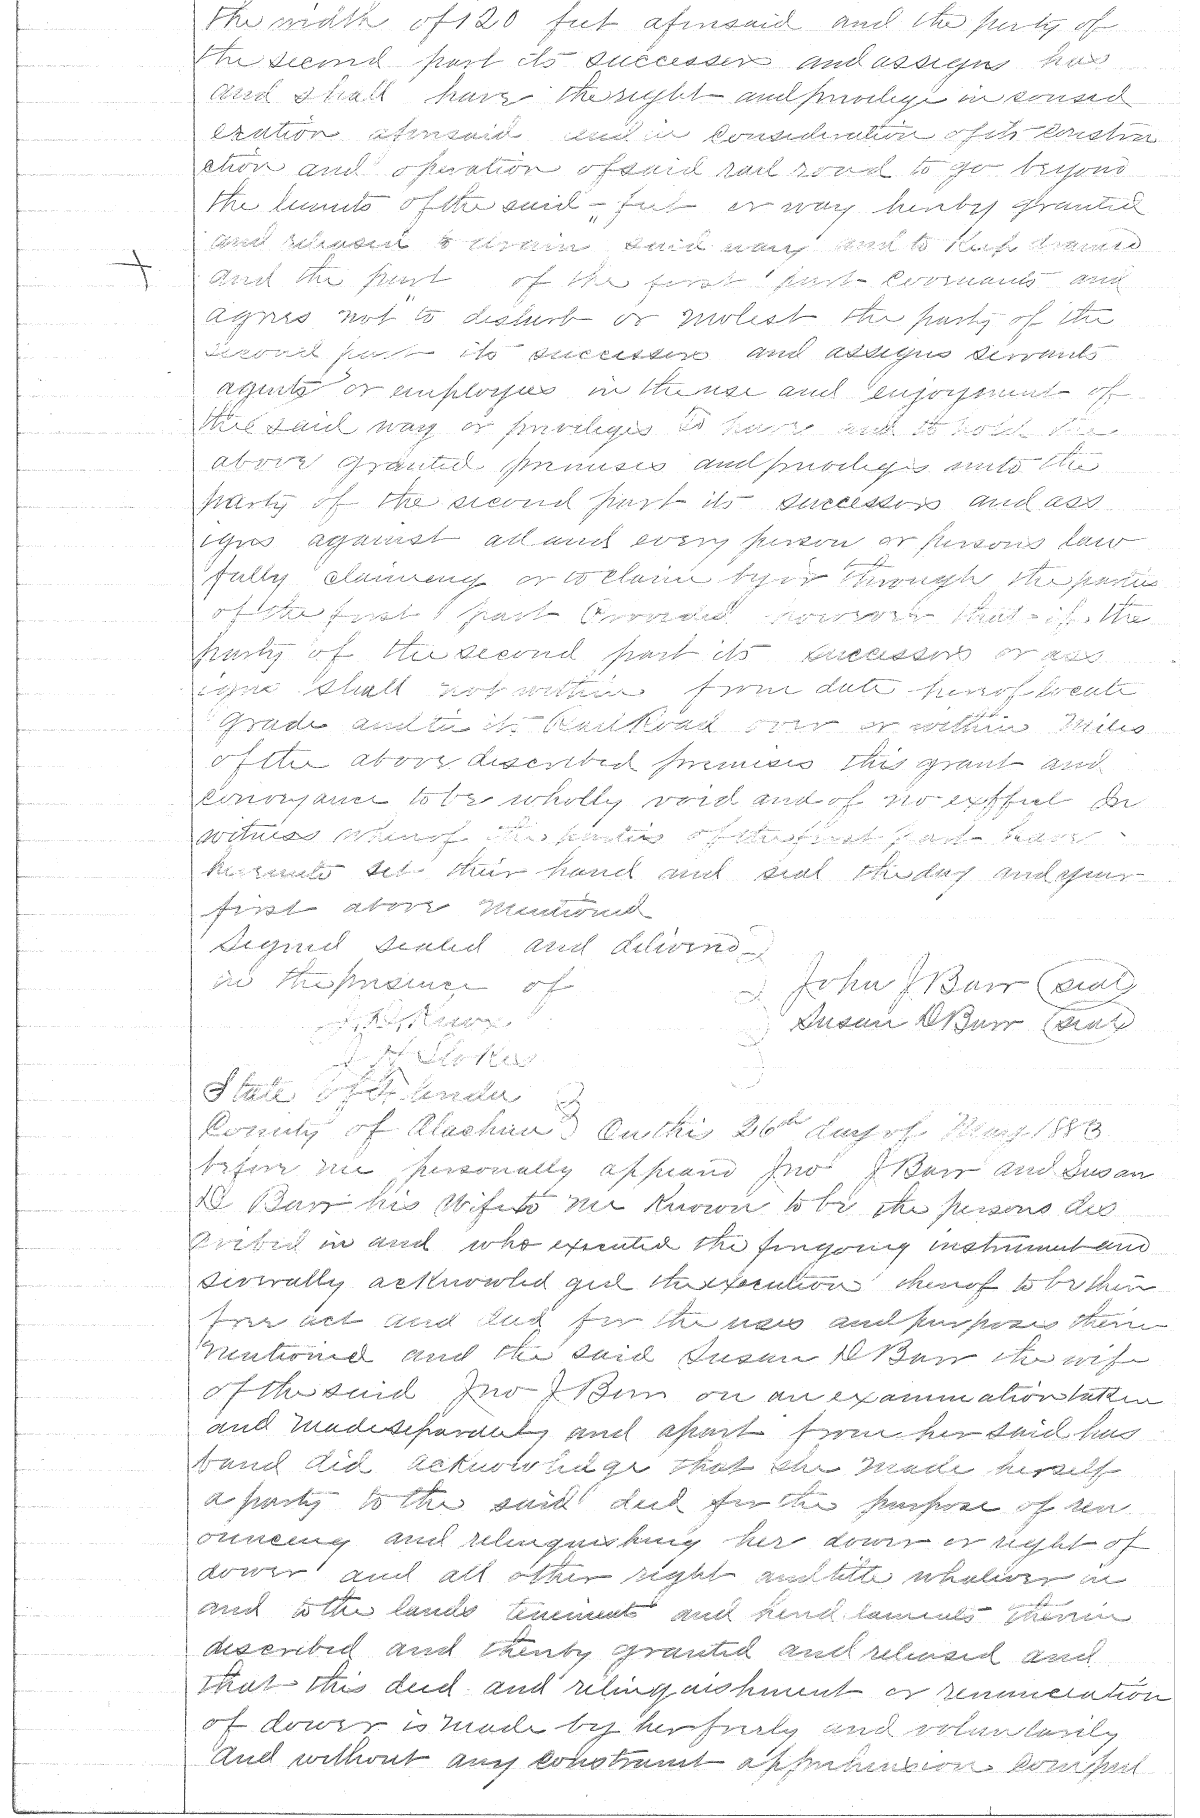 the width of 120 feet aforesaid and the party of
the second part its successors and assigns has
and shall have the right and privilege in consid
eration aforesaid and in consideration of its constru
ction and operation of said rail road to go beyond
the limits of the said - " feet or way hereby granted
and released to drain said way and to keep drained
and the part of the first part covenants and
agrees not to disturb or molest the party of the
second part its successors and assigns servants
agents or employees in the use and enjoyment of
the said way or privileges to have and to hold the
above granted premises and privileges unto the
party of the second part its successors and ass
igns against all and every person or persons law
fully claiming or to claim by or through the parties
of the first part Provided however that if the
party of the second part its successors or ass
igns shall not within from date hereof locate
grade and tie its Rail Road over or within miles
of the above described premises this grant and
conveyance to be wholly void and of no effect In
witness whereof the parties of the first part have
hereunto set their hand and seal the day and year
first above mentioned
Signed sealed and delivered
in the presence of John J Barr (seal)
Susan D Barr (seal)
J H Stokes
State of Florida
County of Alachua On this 26th day of May 1883
before me personally appeard Jno J Barr and Susan
D Barr his Wife to me known to be the persons des
cribed in and who executed the foregoing instrument and
severally acknowled ged the execution thereof to be their
free act and deed for the uses and purposes therein
mentioned and the said Susan D Barr the wife
of the said Jno J Barr on an examination taken
and made separately and apart from her said hus
band did acknowledge that she made herself
a party to the said deed for the purpose of ren
ouncing and relinquishing her dower or right of
dower and all other right and title whatever in
and to the lands tenements and hereditaments therein
described and thereby granted and released and
that this deed and relinquishment or renunciation
of dower is made by her freely and voluntarily
and without any constraint apprehension compul